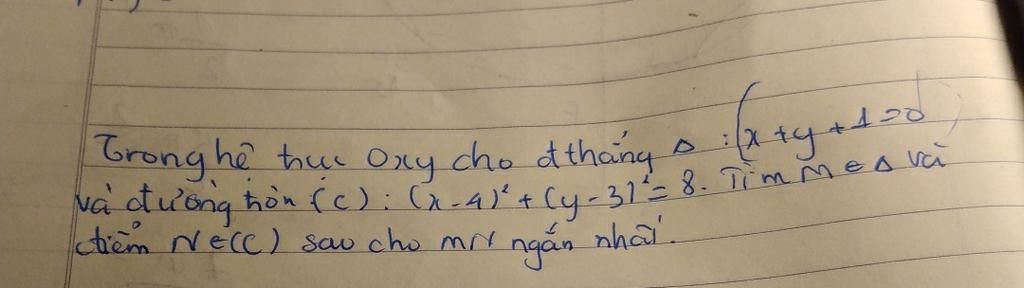 Trong hệ trục Oxy cho đthẳng Δ : (x + y + 1 = 0)
và đường tròn (c) : (x - 4)² + (y - 3)² = 8. Tìm M ∈ Δ và
điểm N ∈ (C) sao cho MN ngắn nhất.